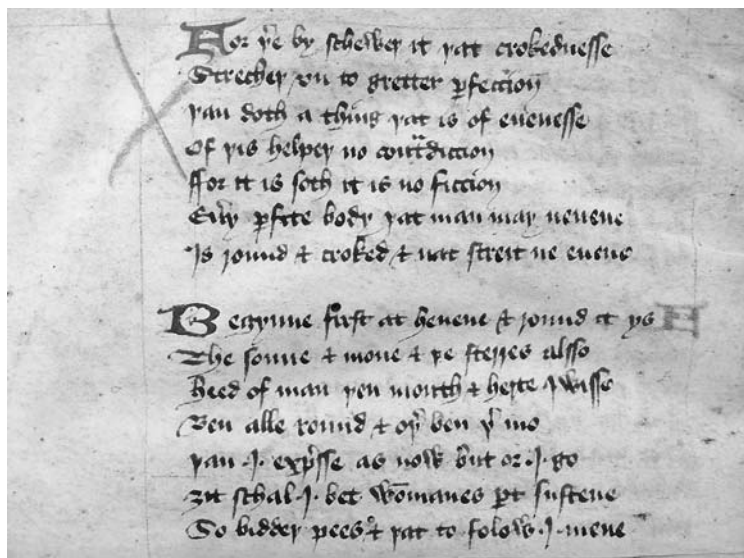 For þe by scheweþ it þat crokednesse
Streccheþ vn to gretter ꝑfeccion
þan doth a thing þat is of euenesse
Of þis helpeþ no contᵃdiccion
ffor it is soth it is no ficcion
Eu̓y ꝑfite body þat man may neuene
Is round & croked & nat streit ne euene
Begynne first at heuene & round it ys
The sonne & mone & þe sterres also
Heed of man þen mouth & herte I wisse
Ben alle round & oþ̓ ben þ̓ mo
þan .I. exp̓sse as now but or .I. go
ȝit schal .I. bet wōmanes ꝑt sustene
So biddeþ pees & þat to folow .I. mene